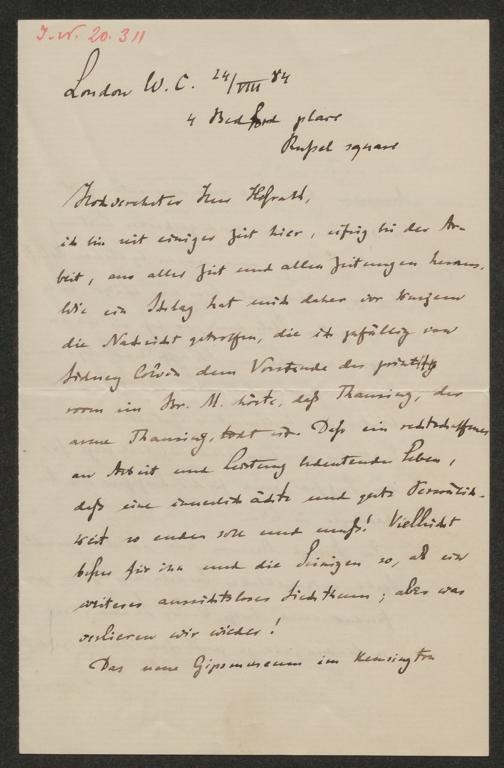 J. N. 20.311
London W. C. 24/VIII 84
4 Bedford place
Russel square
Hochverehrter Herr Hofrath,
ich bin seit einiger Zeit hier, eifrig bei der Ar-
beit, aus aller Zeit und allen Zeitungen heraus.
Wie ein Schlag hat mich daher vor Kurzem
die Nachricht getroffen, die ich zufällig von
Sidney Colvin dem Vorstande des printing
room im Br. M. hörte, daß Thausing, der
arme Thausing, todt ist. Daß ein rechtschaffenes
an Arbeit und Leistung bedeutendes Leben,
daß eine innerlich ächte und gute Persönlich-
keit so enden soll und muß! Vielleicht
besser für ihn und die Seinigen so, als ein
weiteres aussichtsloses Siechthum; aber was
verlieren wir wieder!
Das neue Gipsmuseum im Kensington